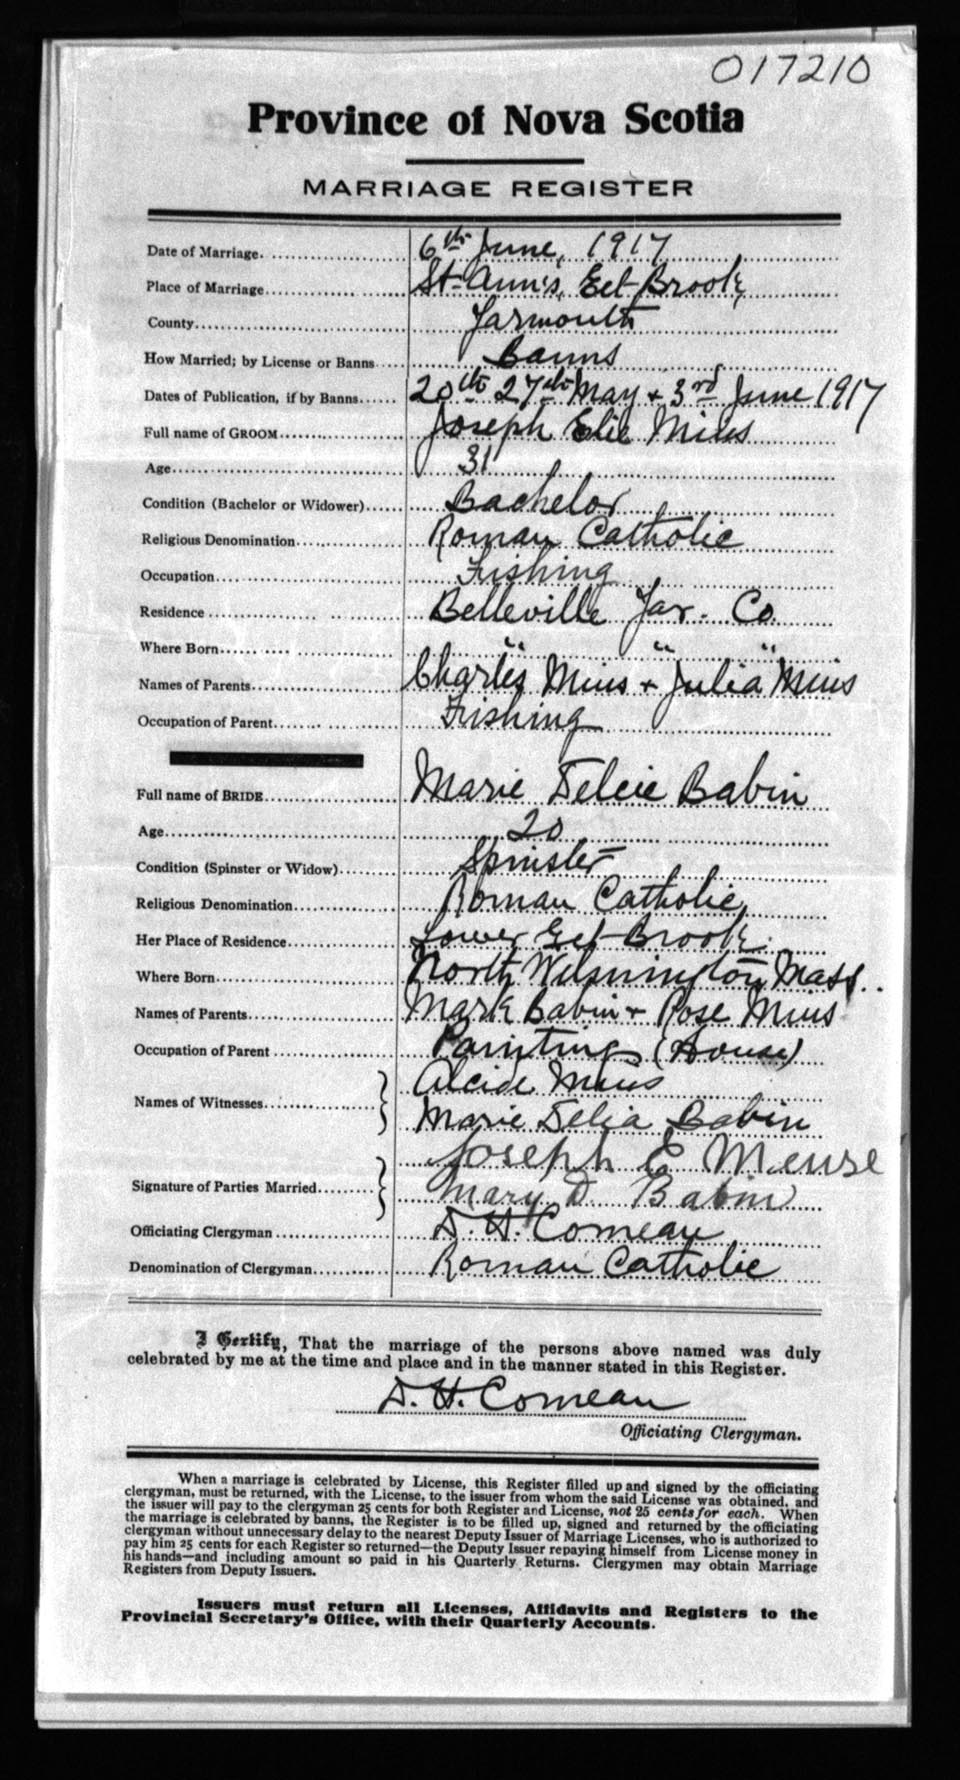 017210
Province of Nova Scotia
MARRIAGE REGISTER
Date of Marriage. 6th June, 1917
Place of Marriage St. Ann's, Eel-Brook
County Yarmouth
How Married; by License or Banns Banns
Dates of Publication, if by Banns 20th 27th May & 3rd June 1917
Full name of GROOM Joseph Elie Mius
Age 31
Condition (Bachelor or Widower) Bachelor
Religious Denomination Roman Catholic
Occupation Fishing
Residence Belleville Yar. Co.
Where Born " " "
Names of Parents Charles Mius & Julia Mius
Occupation of Parent Fishing
Full name of BRIDE Marie Babin
Age 20
Condition (Spinster or Widow) Spinster
Religious Denomination Roman Catholic
Her Place of Residence Lower Eel-Brook
Where Born North Wilmington Mass.
Names of Parents Mark Babin & Rose Mius
Occupation of Parent Painting (House)
Names of Witnesses Alcide Mius
Marie Delia Babin
Signature of Parties Married Joseph E Meuse
Mary D. Babin
Officiating Clergyman D. H. Comeau
Denomination of Clergyman Roman Catholic
I Certify, That the marriage of the persons above named was duly
celebrated by me at the time and place and in the manner stated in this Register.
D. H. Comeau
Officiating Clergyman.
When a marriage is celebrated by License, this Register filled up and signed by the officiating
clergyman, must be returned, with the License, to the issuer from whom the said License was obtained, and
the issuer will pay to the clergyman 25 cents for both Register and License, not 25 cents for each. When
the marriage is celebrated by banns, the Register is to be filled up, signed and returned by the officiating
clergyman without unnecessary delay to the nearest Deputy Issuer of Marriage Licenses, who is authorized to
pay him 25 cents for each Register so returned—the Deputy Issuer repaying himself from License money in
his hands—and including amount so paid in his Quarterly Returns. Clergymen may obtain Marriage
Registers from Deputy Issuers.
Issuers must return all Licenses, Affidavits and Registers to the
Provincial Secretary's Office, with their Quarterly Accounts.